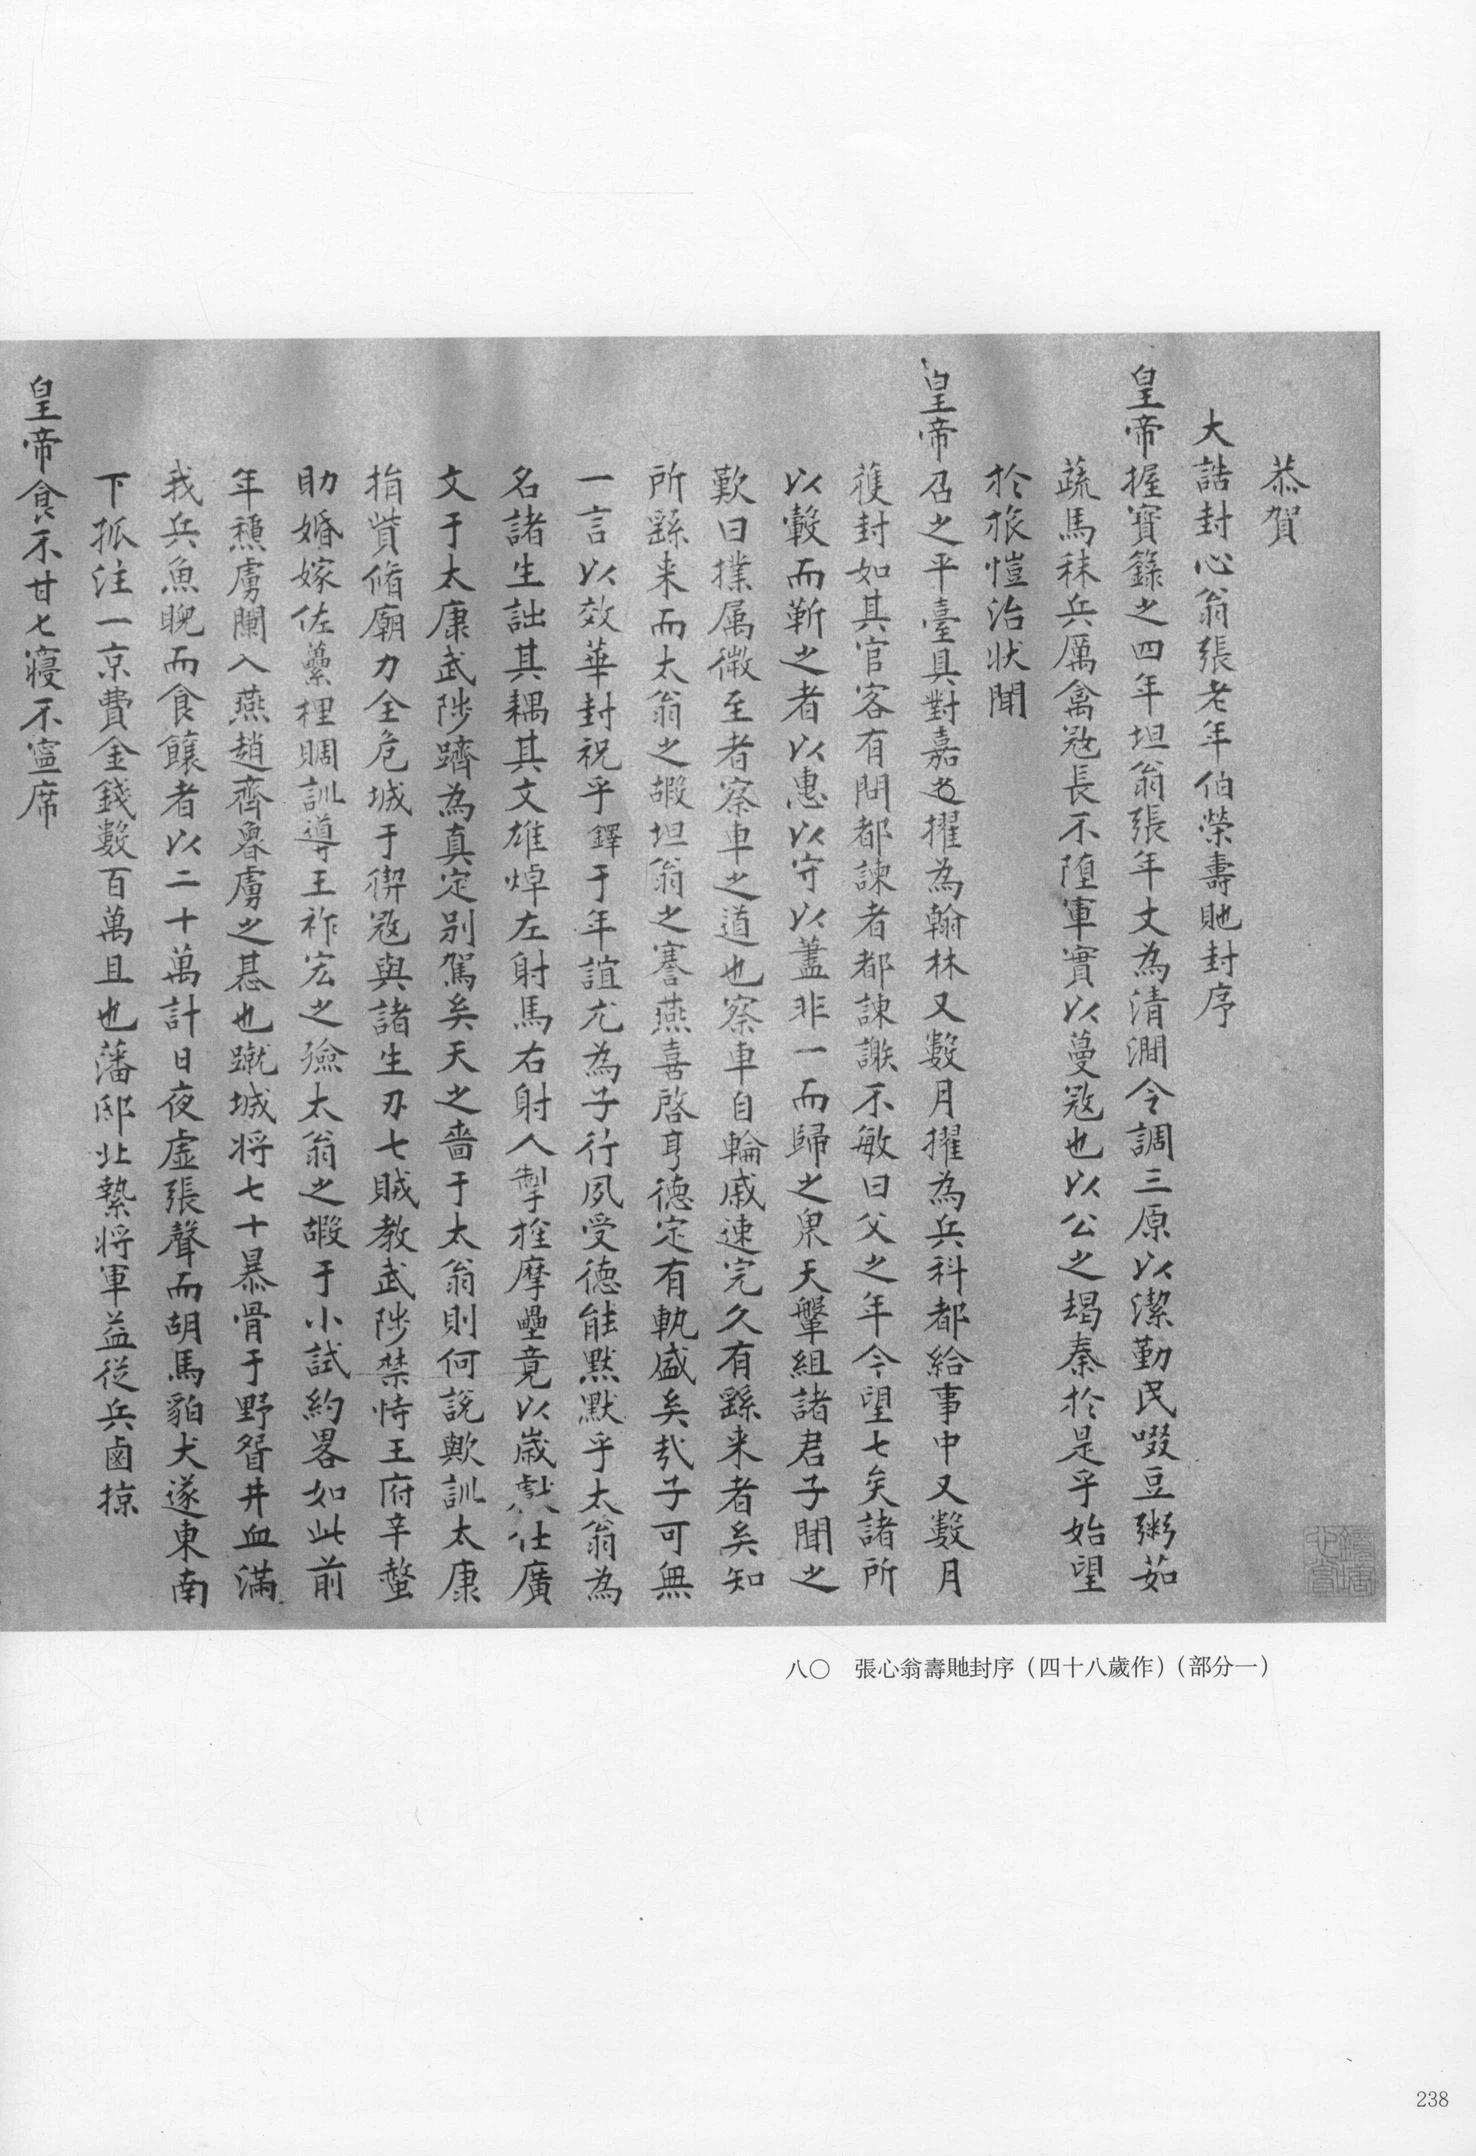 恭賀
大誥封心翁張老年伯榮壽貤封序
皇帝握寶籙之四年坦翁張年丈為清澗令調三原以潔勤民啜豆粥茹
蔬馬秣兵厲禽寇長不墮軍實以蔓寇也以公之朅秦於是乎始望
於旅愷治狀聞
皇帝召之平臺具對嘉迺擢為翰林又數月擢為兵科都給事中又數月
獲封如其官客有問都諫者都諫謙不敏曰父之年今望七矣諸所
以轂而靳之者以惠以守以藎非一而歸之 天鞶組諸君子聞之
歎曰撲属微至者察車之道也察車自輪戚速完久有繇来者矣知
所繇来而太翁之嘏坦翁之謇燕喜啓亨德定有軌盛矣哉子可無
一言以效華封祝乎鐸于年誼尤為子行夙受德能黙默乎太翁為
名諸生詘其耦其文雄焯左射馬右射人掣 摩壘竟以歲獻仕廣
文于太康武陟躋為真定别駕矣天之嗇于太翁則何說歟訓太康
捐貲脩廟力全危城于禦寇與諸生刃七賊教武陟禁恃王府辛螫
助婚嫁佐虆梩賙訓導王祚宏之殮太翁之嘏于小試約畧如此前
年 虜闌入燕趙齊魯虜之惎也蹴城将七十暴骨于野眢井血滿
我兵魚睨而食饟者以二十萬計日夜虛張聲而胡馬貃犬遂東南
下孤注一京費金錢數百萬且也藩邸北縶将軍益從兵鹵掠
皇帝食不甘七寢不寧席
八〇　張心翁壽貤封序（四十八歲作）（部分一）
238